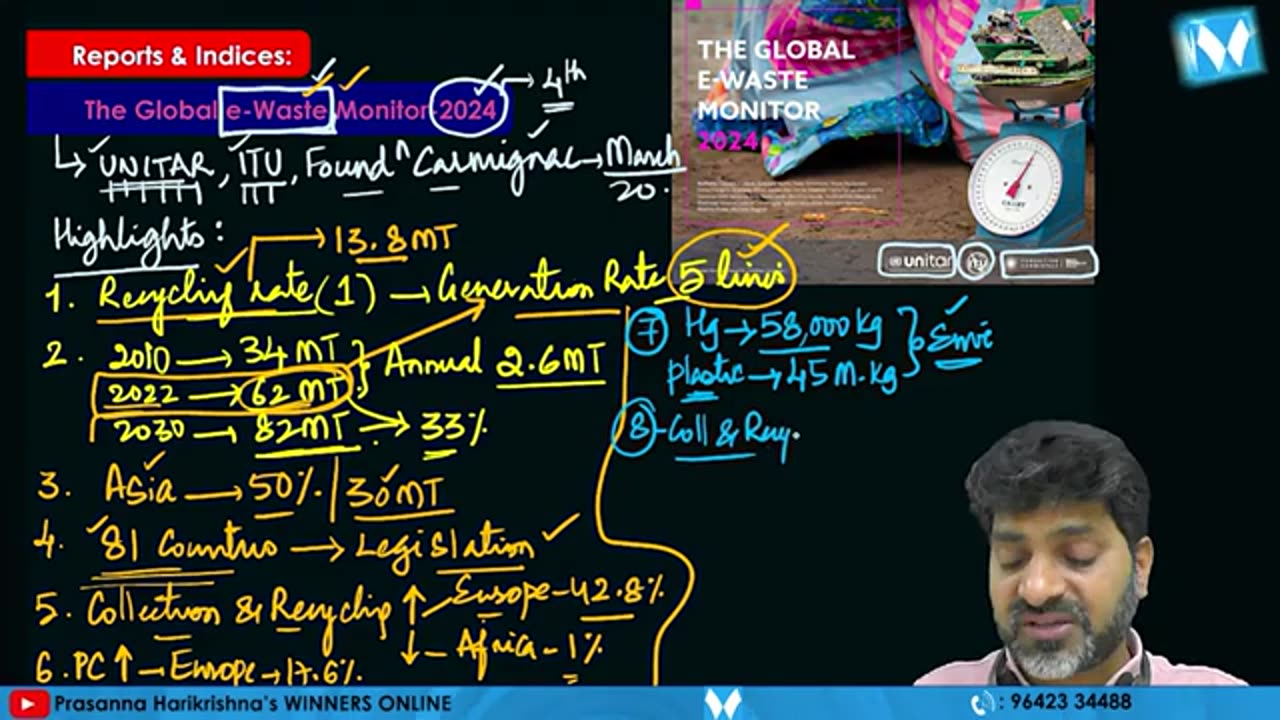 Reports & Indices:
The Global e-Waste Monitor-2024 → 4th
↳ UNITAR, ITU, Foundⁿ Carmignac → March 20.
Highlights:
→ 13.8MT
1. Recycling rate (1) → Generation Rate 5 times
2. 2010 → 34 MT
2022 → 62 MT
2030 → 82MT → 33%
Annual 2.6MT
3. Asia → 50% | 30MT
4. 81 Countries → Legislation
5. Collection & Recycling ↑ Europe - 42.8%
↓ - Africa - 1%
6. PC ↑ → Europe → 17.6%
7 Hg → 58,000 kg
plastic → 45 M.kg
Envi
8 - Coll & Recy
THE GLOBAL
E-WASTE
MONITOR
2024
unitar
ITU
W
Prasanna Harikrishna's WINNERS ONLINE
: 96423 34488